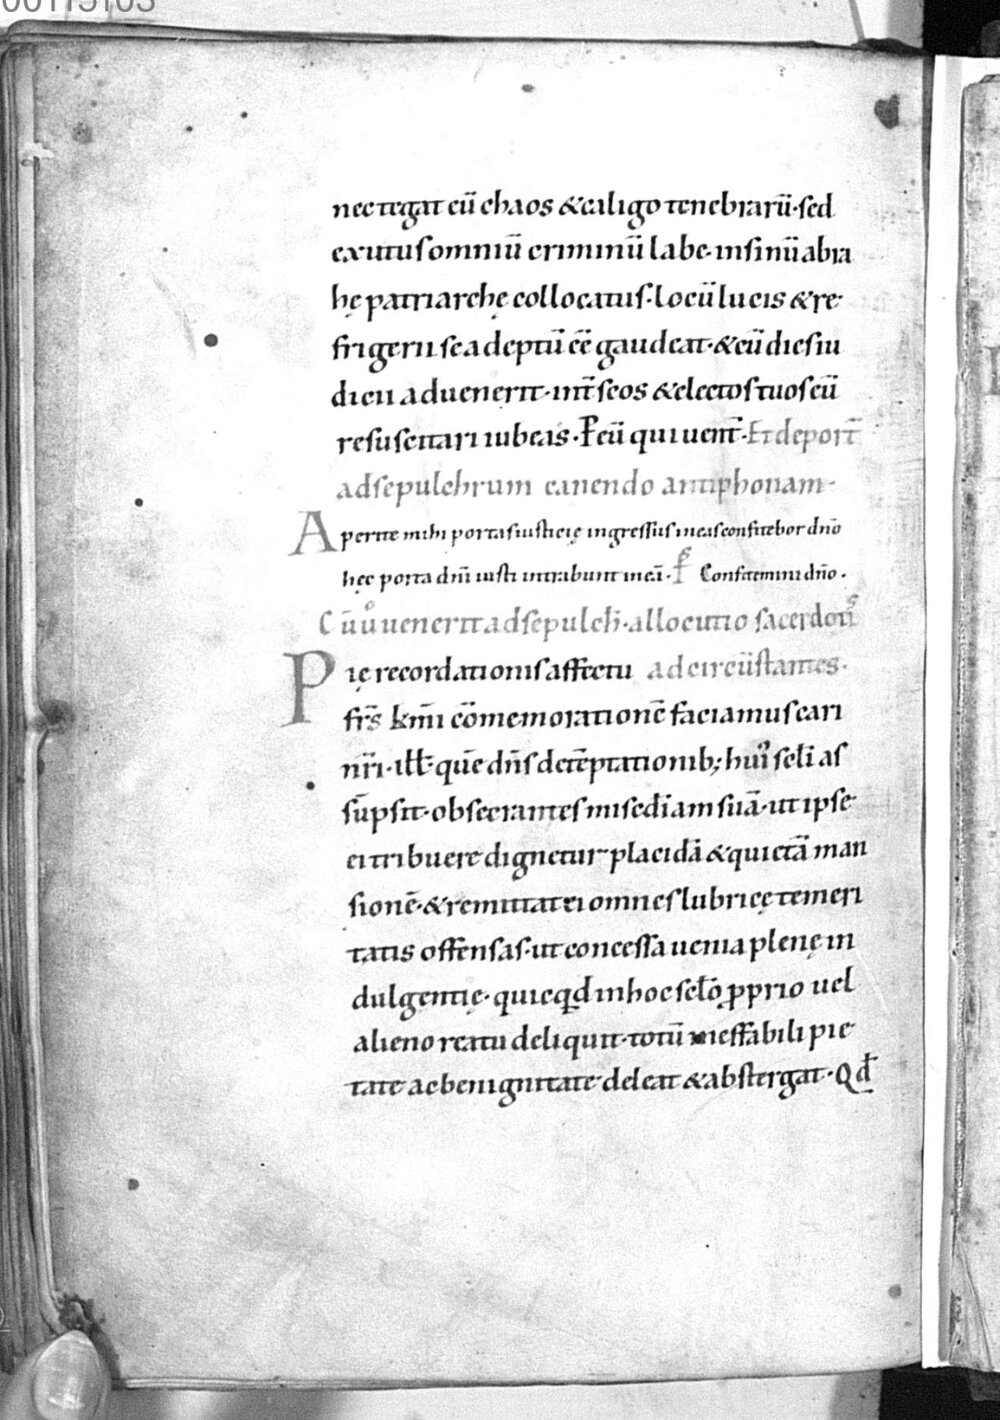 nec tegat eū chaos & caligo tenebrarū · sed
exutus omniū criminū labe · in sinū abra
hę patriarchę collocatus · locū lucis & re
frigerii se adeptū eē gaudeat · & cū dies iu
dicii aduenerit · int̄ scos & electos tuos eū
resuscitari iubeas · P̄ eū qui uent̄ · Et deport̄
ad sepulchrum canendo antiphonam ·
Aperite mihi portas iusticię ingressus in eas confitebor dn̄o
hęc porta dn̄i iusti intrabunt in eā · Confitemini dn̄o ·
Cū uͦ uenerit ad sepulch̄ · allocutio sacerdotis
Pię recordationis affectu ad circūstantes ·
fr̄s km̄i cōmemorationē faciamus cari
nr̄i · ill̄ quē dn̄s de tēptationib; hui᾽ scl̄i as
sūpsit · obsecrantes misc̄diam suā · ut ipse
ei tribuere dignetur placidā & quietā man
sionē · & remittat ei omnes lubricę temeri
tatis offensas · ut concessa uenia plenę in
dulgentię · quicqd̄ in hoc scl̄o ꝓprio uel
alieno reatu deliquit · totū ineffabili pie
tate ac benignitate deleat & abstergat · Qd̄